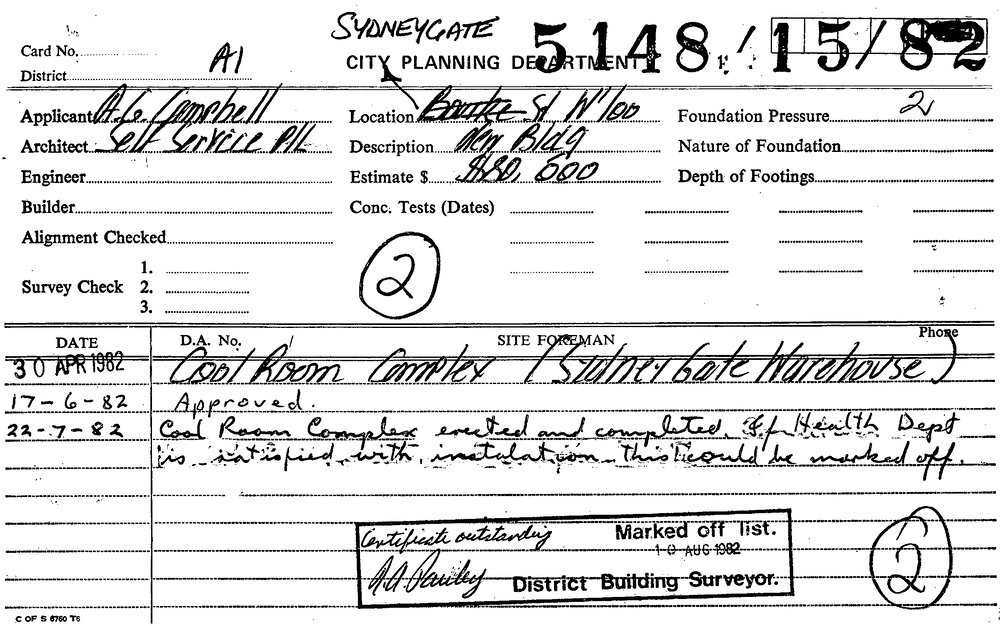 SYDNEYGATE
5148/15/82
Card No.
A1
CITY PLANNING DEPARTMENT
District
Applicant A.G. Campbell
Location Bourke St W'loo
Foundation Pressure 2
Architect Self Service P/L
Description New Bldg
Nature of Foundation
Engineer
Estimate $ $80,000
Depth of Footings
Builder
Conc. Tests (Dates)
Alignment Checked
2
Survey Check 1.
2.
3.
DATE D.A. No. SITE FOREMAN Phone
30 APR 1982 Cool Room Complex (Sydney Gate Warehouse)
17-6-82 Approved.
22-7-82 Cool Room Complex erected and completed. If Health Dept
is satisfied with instalation this could be marked off.
Certificate outstanding Marked off list.
10 AUG 1982
District Building Surveyor.
2
C OF S 6760 T6